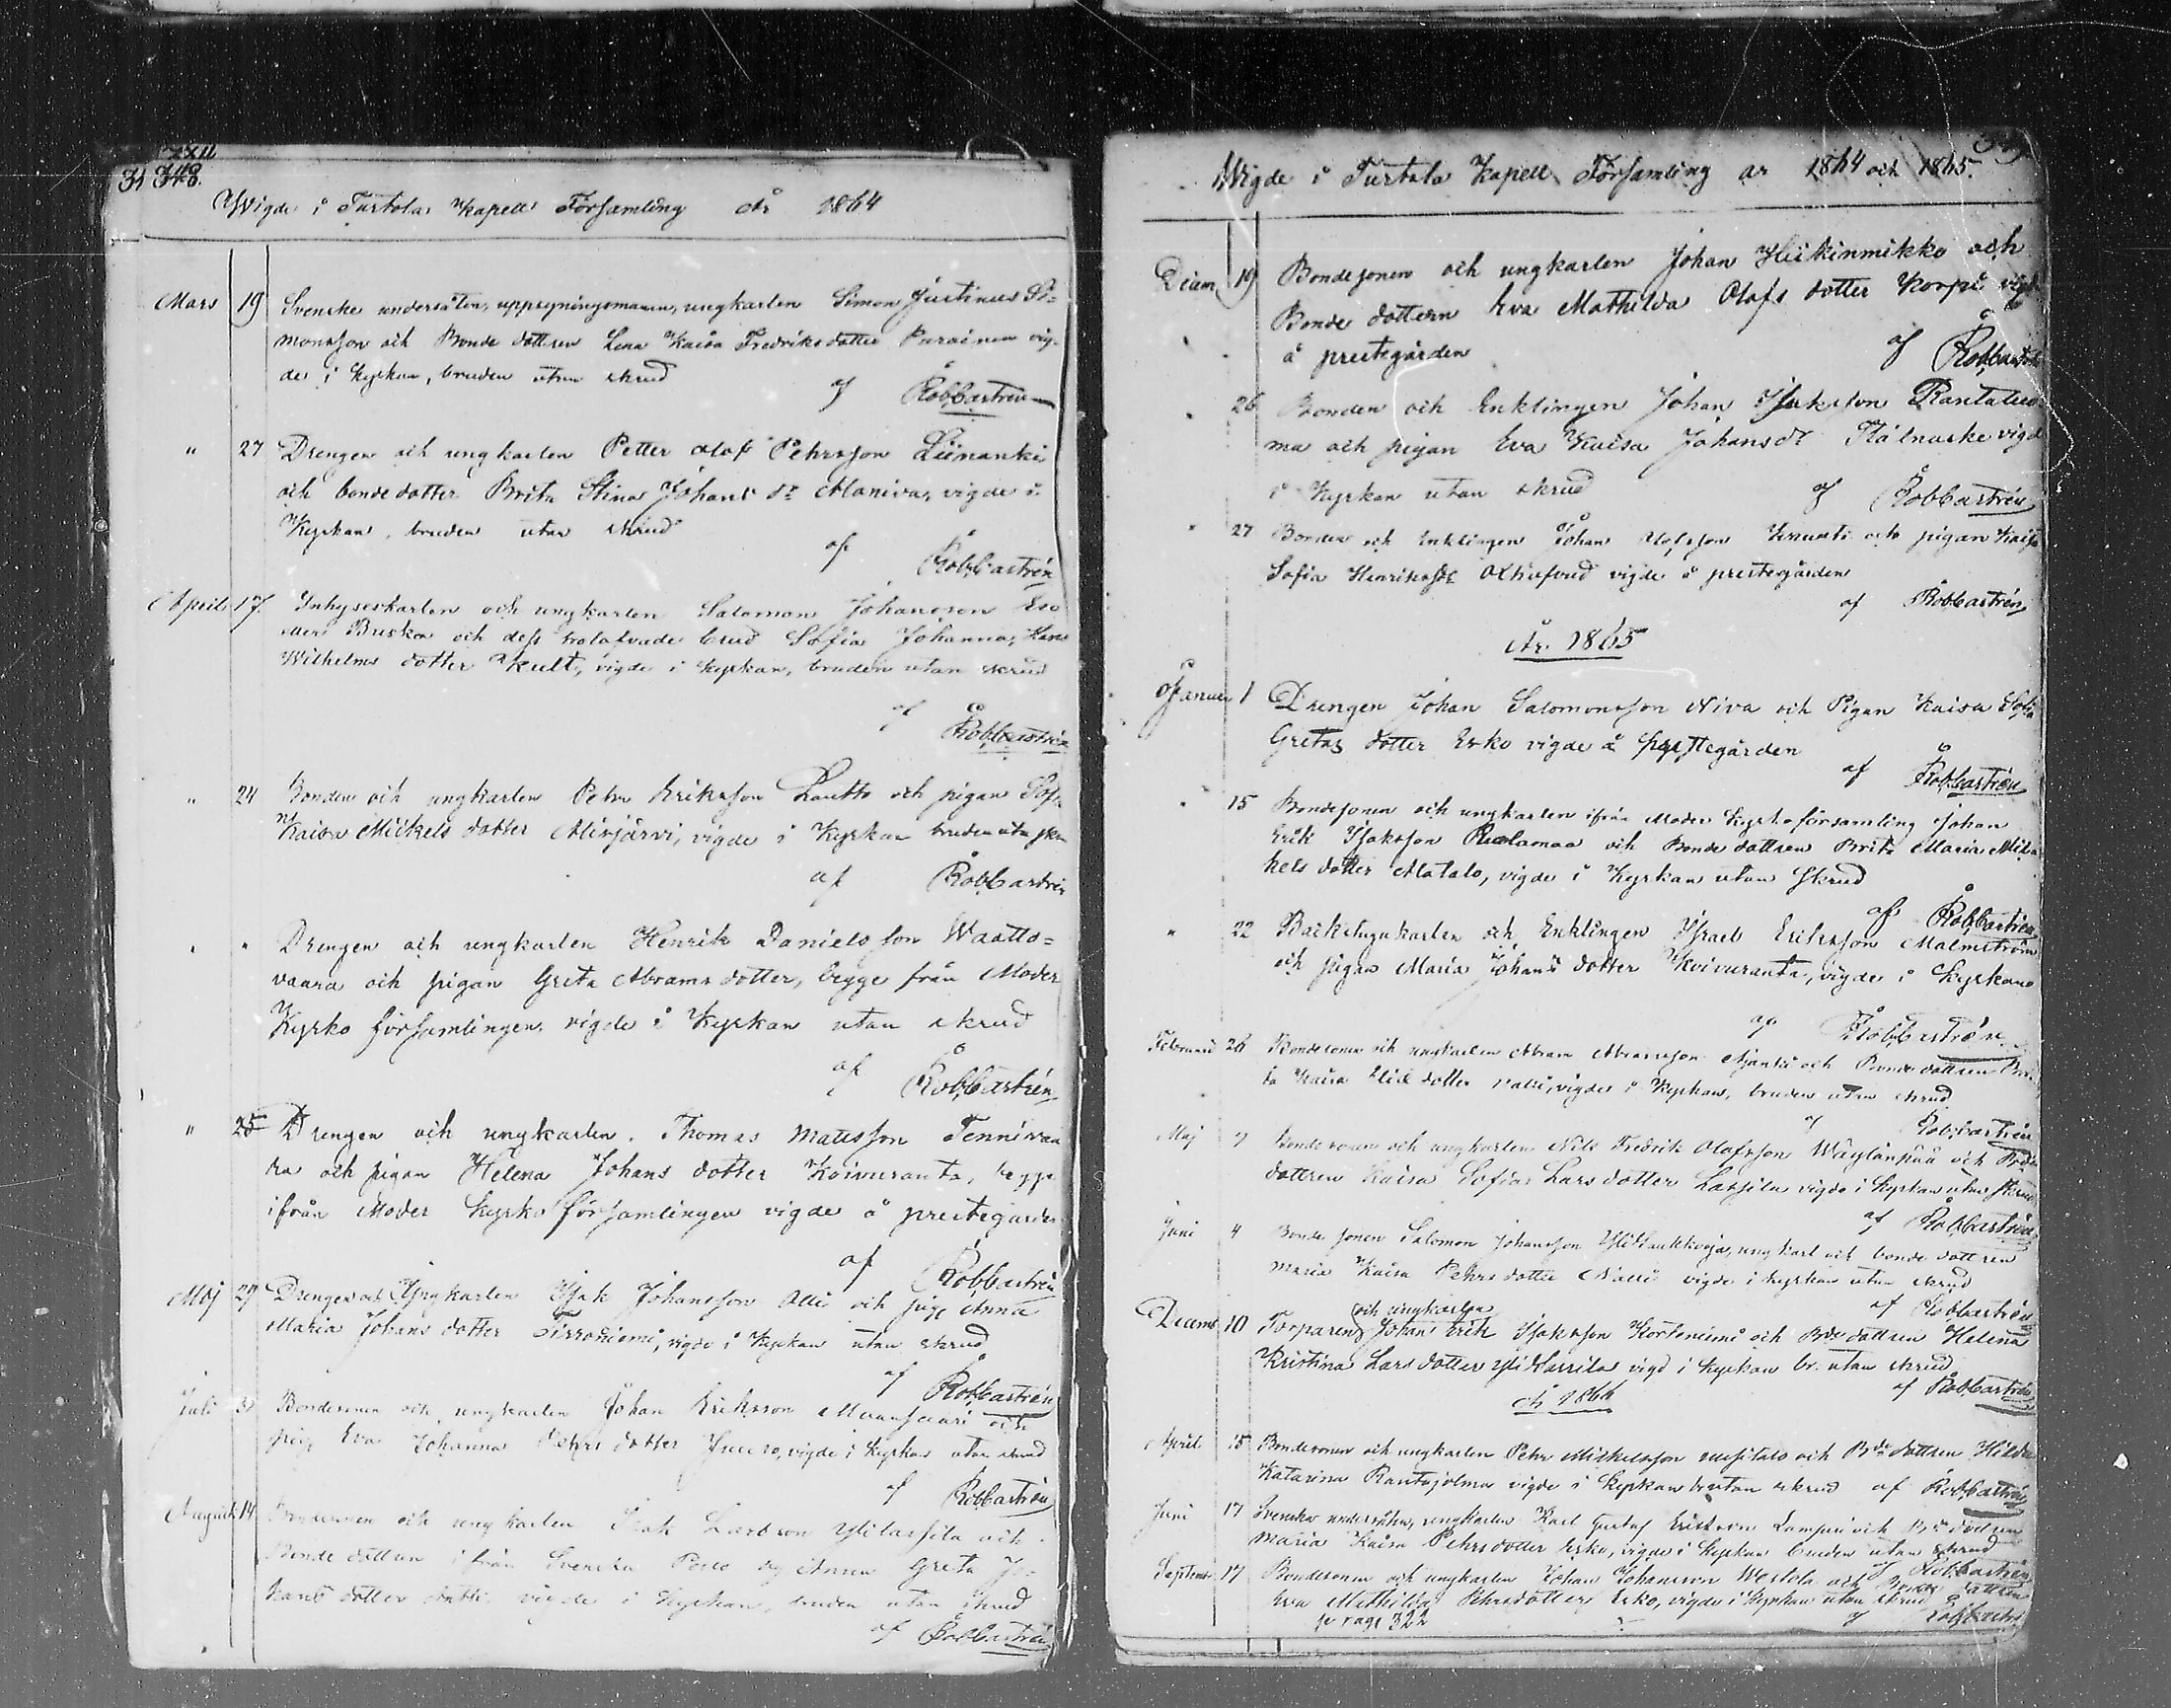 348.
Wigde i Turtola Kapell Församling År 1864
Mars 19 Svenske undersåten, uppsyningsmannen, ungkarlen Simon Justinus Si=
monsson och Bonde dottren Lena Kaisa Fredriksdotter Purainen vig-
de i Kyrkan, bruden utan skrud
af Rob. Castrén
" 27 Drengen och ungkarlen Petter Olof Pehrsson Liinanki
och bondedotter Brita Stina Johans dr Alaniva, vigde i
Kyrkan, bruden utan skrud
af Rob. Castrén
April 17 Inhyseskarlen och ungkarlen Salomon Johansson
Buska och dess trolofvade brud Sofia Johanna, Hans
Wilhelms dotter Kult, vigde i Kyrkan, bruden utan skrud
af Rob. Castrén
" 24 Bonden och ungkarlen Pehr Eriksson Lautto och pigan Sofi
Kaisa Mickels dotter Alirjärvi, vigde i Kyrkan bruden utan skru
af Rob. Castrén
" " Drengen och ungkarlen Henrik Danielsson Waatto=
vaara och pigan Greta Abrams dotter, begge från Moder
Kyrko församlingen, vigde i Kyrkan utan skrud
af Rob. Castrén
" 25 Drengen och ungkarlen Thomas Matisson Tennivaa
ra och pigan Helena Johans dotter Koivuranta, begge
ifrån Moder Kyrko församlingen vigde å prestegården
af Rob. Castrén
Maj 29 Drengen och Ungkarlen Isak Johansson Olli och pig. Anna
Maria Johans dotter Sirroniemi, vigde i Kyrkan utan skrud
af Rob. Castrén
Juli 3 Bondesonen och ungkarlen Johan Eriksson och
pig. Eva Johanna Pehrs dotter Juuso, vigde i Kyrkan utan skrud
af Rob. Castrén
Augusti 14 Bondesonen och ungkarlen Isak Larsson Ylilassila och
Bonde dottren ifrån Svenska Anna Greta Jo-
hans dotter vigde i Kyrkan, bruden utan skrud
af Rob. Castrén
Wigde i Turtola Kapell Församling år 1864 och 1865.
Decem 19 Bondesonen och ungkarlen Johan Heikinmikko och
Bonde dottern Eva Mathilda Olofs dotter Korpi vigd
å prestegården
af Rob. Castrén
" 26 Bonden och Enklingen Johan Isaksson Rantatulo
ma och pigan Eva Kaisa Johans dr vigd
i Kyrkan utan skrud
af Rob. Castrén
" 27 Bonden och Enklingen Johan Olofsson Kruunti och pigan Kaisa
Sofia Henriks dr vigde å prestegården
af Rob. Castrén
År 1865
Januari 1 Drengen Johan Salomonsson Niva och Pigan Kaisa Sofia
Gretas dotter Erko vigde å prestegården
af Rob. Castrén
" 15 Bondesonen och ungkarlen ifrån Moder Kyrkoförsamling Johan
Erik Isaksson Ruolamaa och Bonde dottren Brita Maria Mic
kels dotter Alatalo, vigde i Kyrkan utan skrud
af Rob. Castrén
" 22 Backstugukarlen och Enklingen Israel Eriksson Malmström
och pigan Maria Johans dotter Koivuranta, vigde i Kyrkan
af Rob. Castrén
Februari 26 Bondesonen och ungkarlen Abram Abramsson och Bonde dottren Bri
ta Kaisa dotter Palli, vigde i Kyrkan, bruden utan skrud
af Rob. Castrén
Maj 7 Bondesonen och ungkarlen Nils Fredrik Olofsson Wäylänpää och Bonde
dottren Kaisa Sofia Lars dotter Lassila vigde i Kyrkan utan skrud
af Rob. Castrén
Juni 4 Bonde sonen Salomon Johansson ungkarl och bonde dottren
Maria Kaisa Pehrs dotter Nalli vigde i Kyrkan utan skrud
af Rob. Castrén
Decemb 10 Torparen och ungkarlen Johan Erik Isaksson Korteniemi och Bde dottren Helena
Kristina Lars dotter Yliharrila vigd i Kyrkan br. utan skrud
af Rob. Castrén
År 1866
April 15 Bondesonen och ungkarlen Pehr Mickelsson Uusitalo och Bde dottren Hilda
Katarina Rantajolma vigde i Kyrkan br utan skrud af Rob. Castrén
Juni 17 Svenska undersåten, ungkarlen Karl Gustaf Eriksson Lampa och Bde dottren
Maria Kaisa Pehrs dotter Erko, vigde i Kyrkan bruden utan skrud
af Rob. Castrén
Septemb 17 Bondesonen och ungkarlen Johan Johansson Westola och Bonde dottren
Eva Mathilda Pehrs dotter Erko, vigde i Kyrkan utan skrud
se page 322 af Rob. Castrén